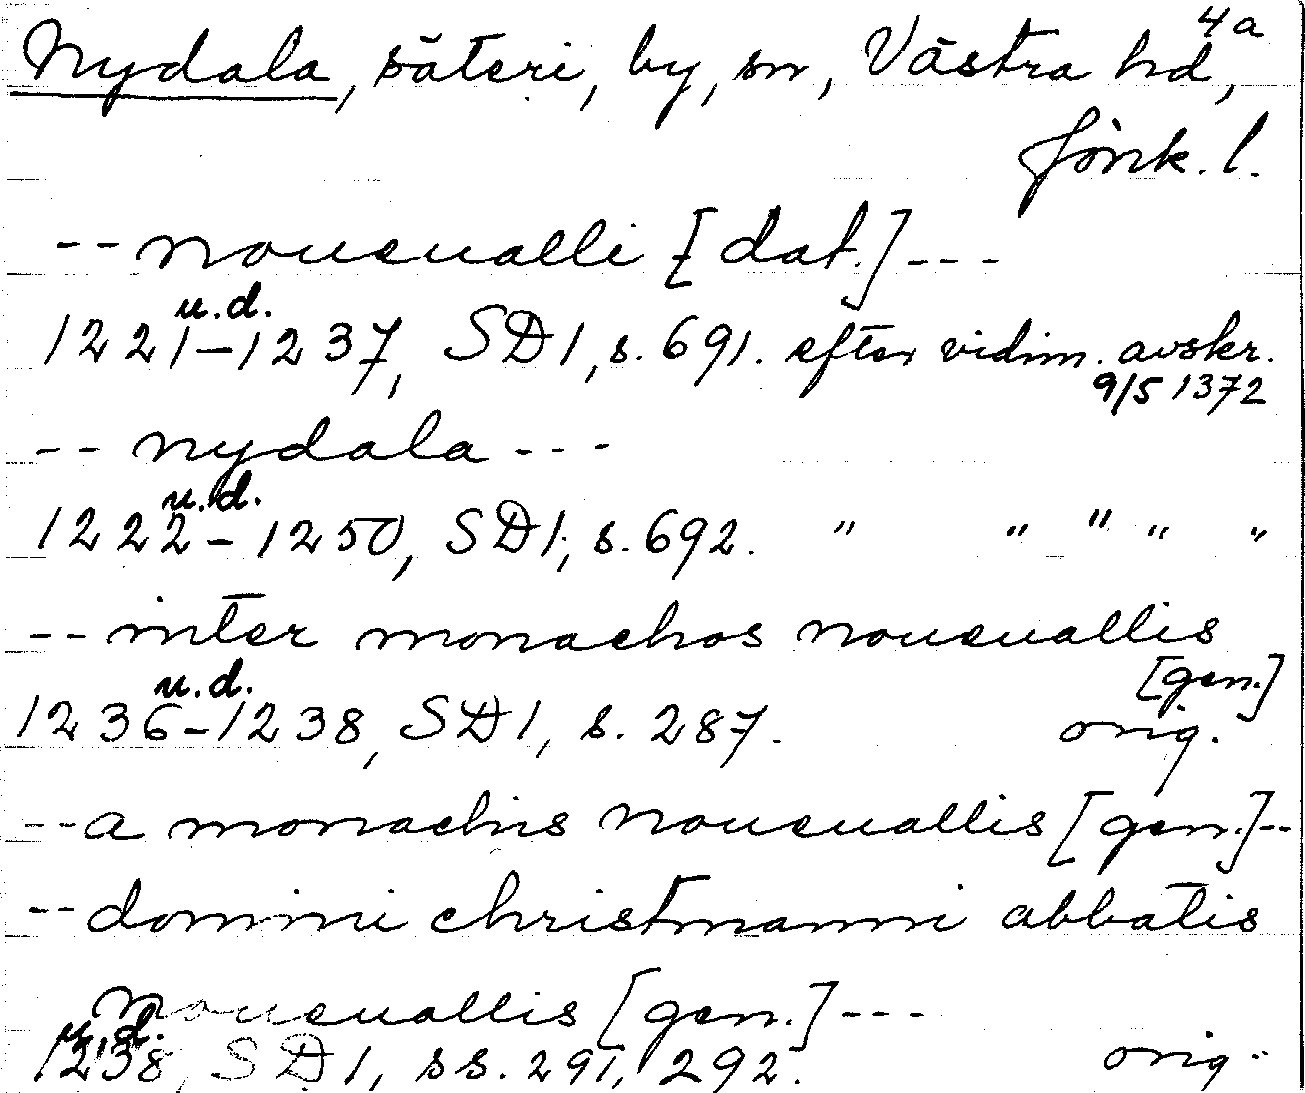 4a
Nydala, säteri, by, sn, Västra hd,
Jönk. l.
-- noueualli [dat.] ---
u.d.
1221-1237, SD1, s. 691. efter vidim. avskr.
9/5 1372
-- nydala ---
u.d.
1222-1250, SD1, s. 692. " " " " "
-- inter monachos noueuallis
[gen.]
u.d.
1236-1238, SD1, s. 287. orig.
-- a monachis noueuallis [gen.]--
-- domini christmanni abbatis
noueuallis [gen.] ---
u.d.
1238, SD1, ss. 291, 292. orig.